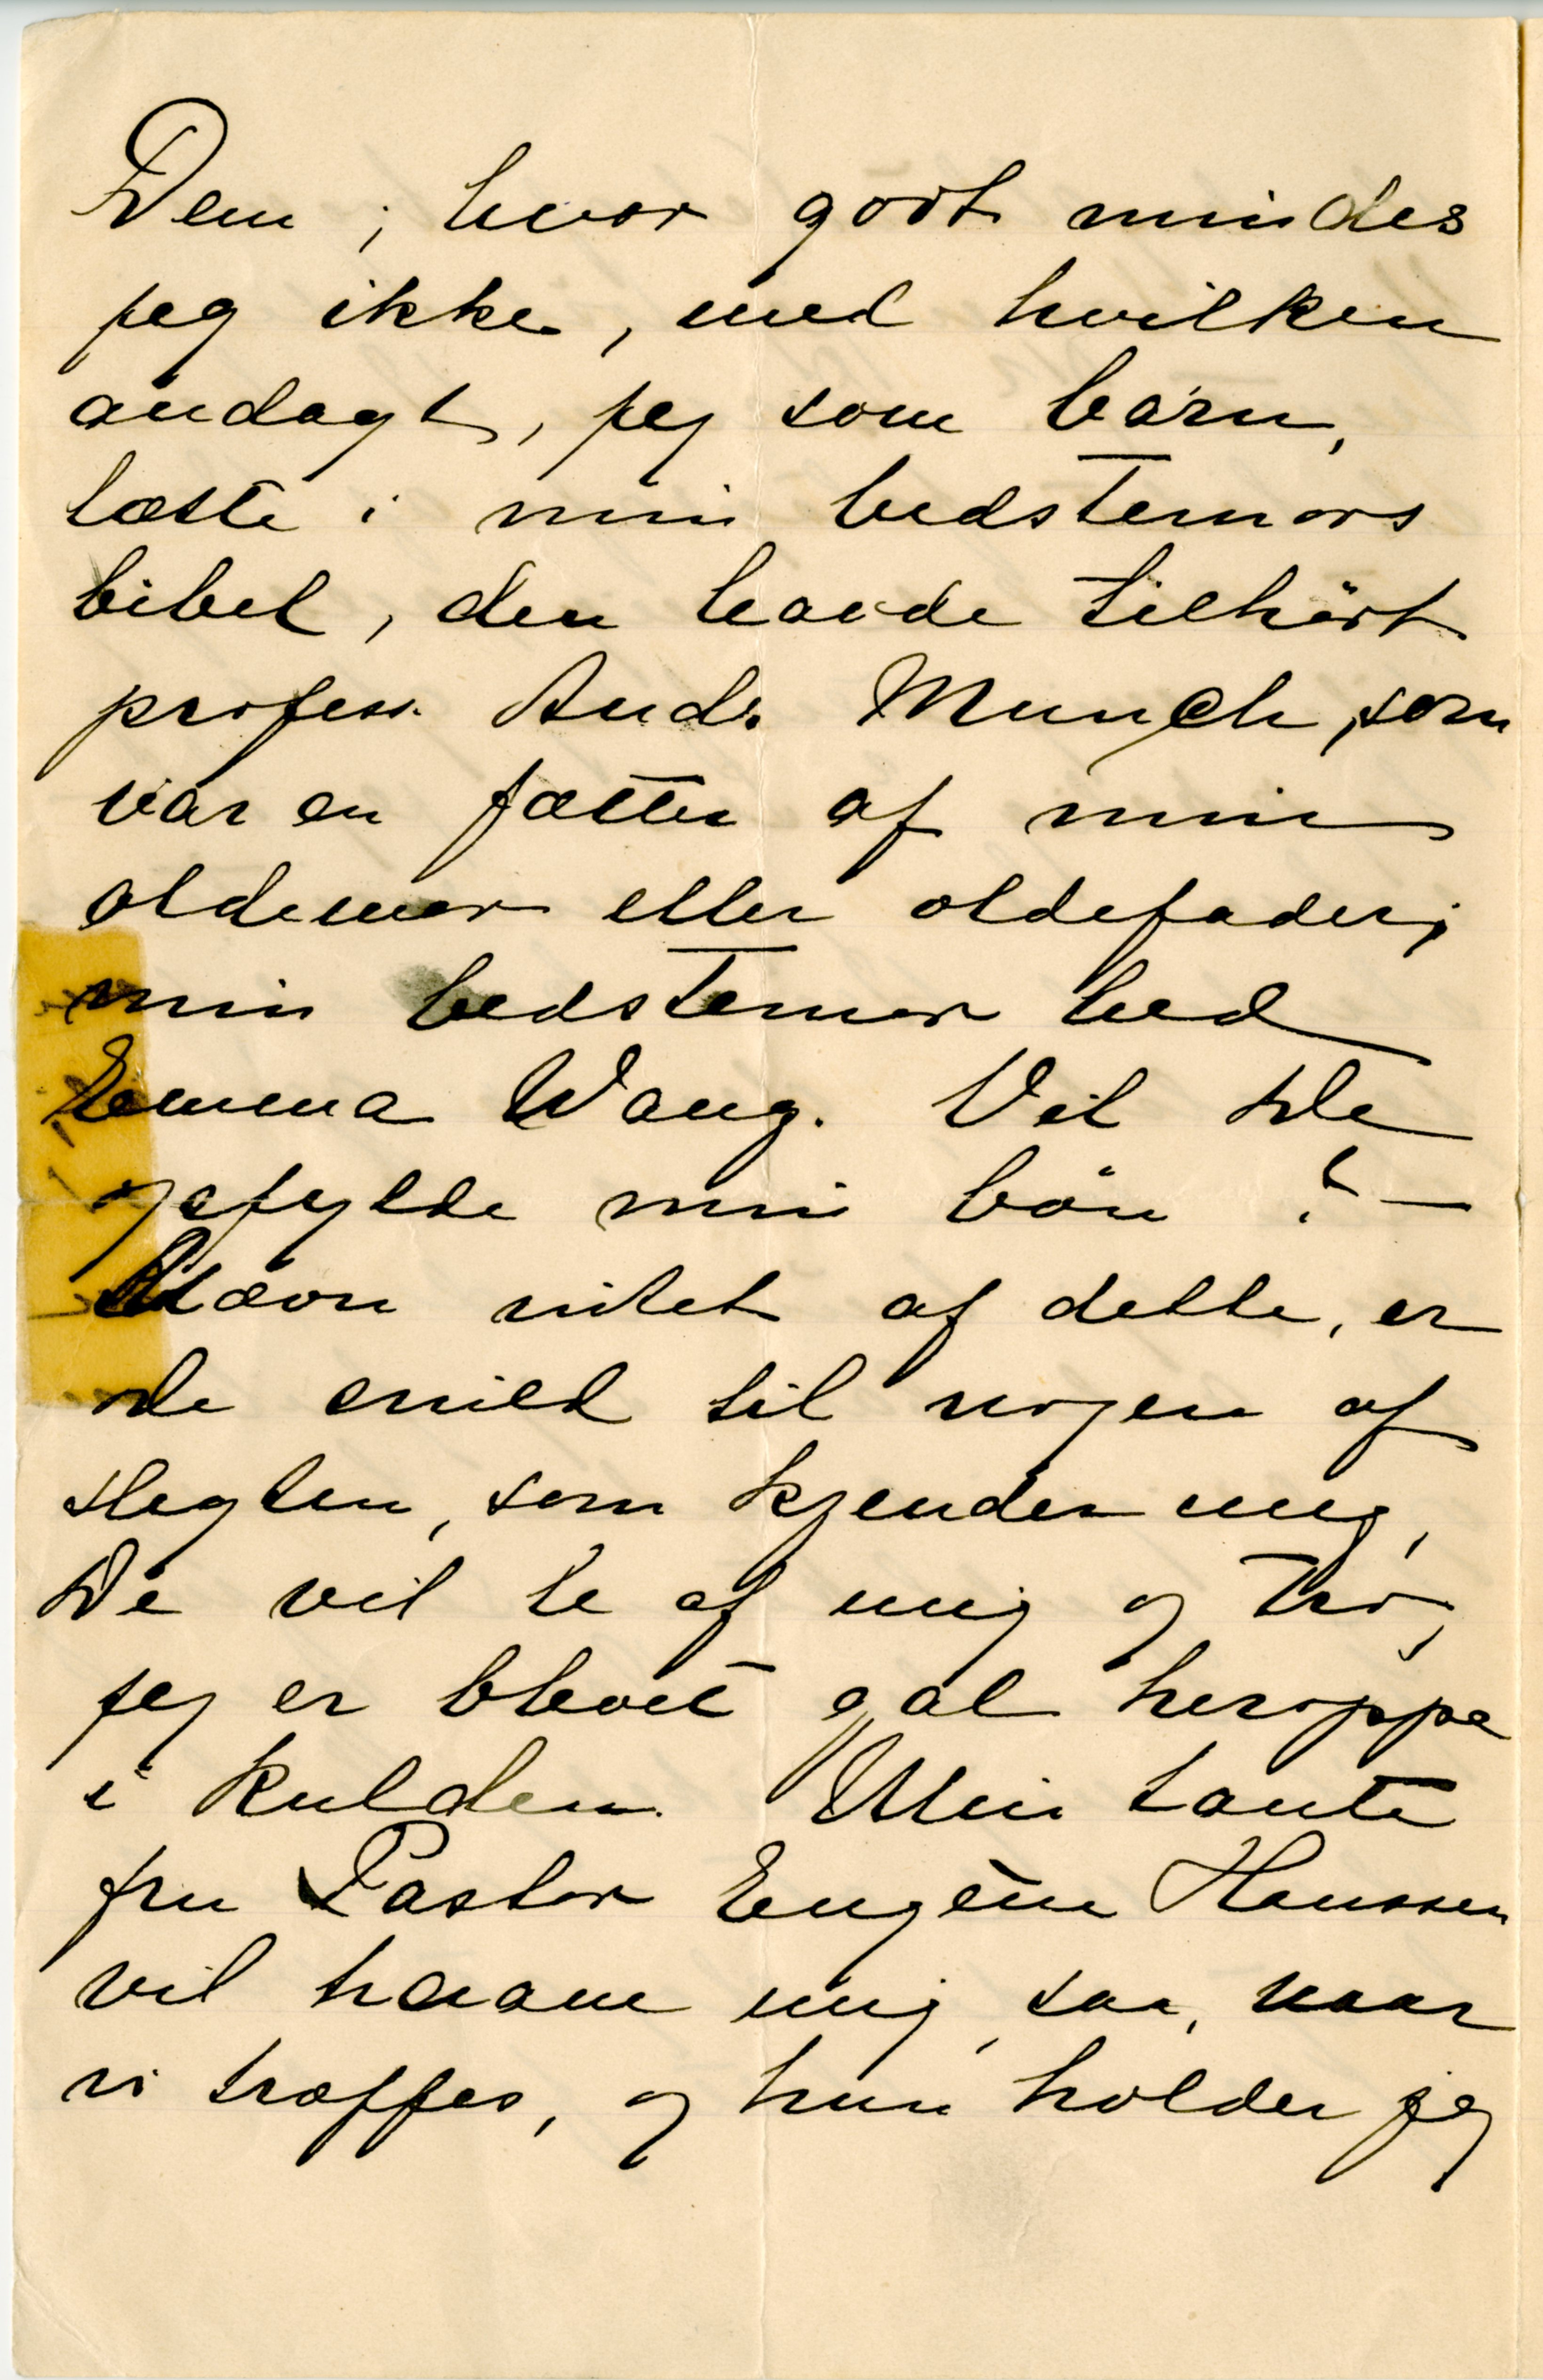 Dem; hvor godt mindes
jeg ikke, med hvilken
andagt, jeg som barn,
læste i min bedstemors
bibel, den havde tilhört
profess. Andr. Munch, som
var en fætter af min
oldemor eller oldefader;
min bedstemor hed
Emma Wang. Vil De
opfylde min bön? —
Nævn intet af dette, er
De snild til nogen af
slegten, som kjender mig,
De vil le af mig og tro,
jeg er blevet gal heroppe
i kulden. Min tante
fru Pastor Eugène Hanssen
vil haane mig saa, naar
vi træffes, og hun holder jeg